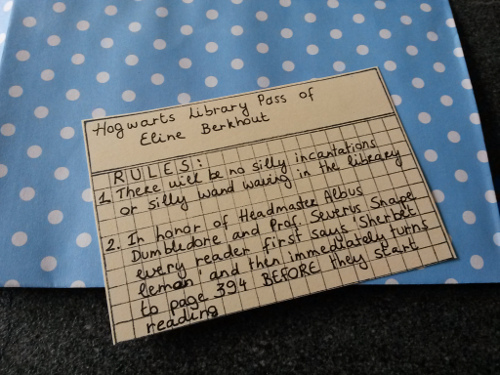 Hogwarts Library Pass of
Eline Berkhout
RULES:
1. There will be no silly incantations
or silly wand waving in the library
2. In honor of Headmaster Albus
Dumbledore and Prof. Severus Snape
every reader first says 'Sherbet
lemon' and then immediately turns
to page 394 BEFORE they start
reading